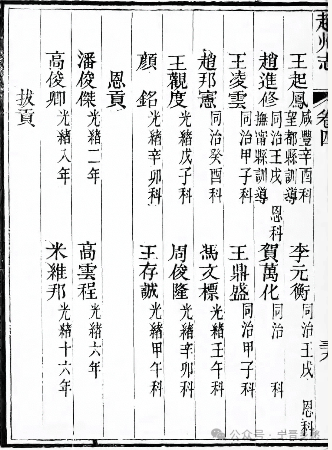 趙州志 卷四
王起鳳 咸豐辛酉科 望都縣訓導 李元衡 同治壬戌 恩科
趙進修 同治壬戌 恩科 撫甯縣訓導 賀萬化 同治 科
王凌雲 同治甲子科 王鼎盛 同治甲子科
趙邦憲 同治癸酉科 馮文標 光緒壬午科
王觀度 光緒戊子科 周俊隆 光緒辛卯科
顏銘 光緒辛卯科 王存誠 光緒甲午科
恩貢
潘俊傑 光緒二年 高雲程 光緒六年
高俊卿 光緒八年 米維邦 光緒十六年
拔貢
公众号